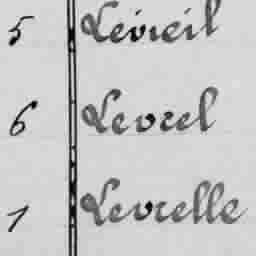 5 Levieil
6 Levrel
1 Levrelle